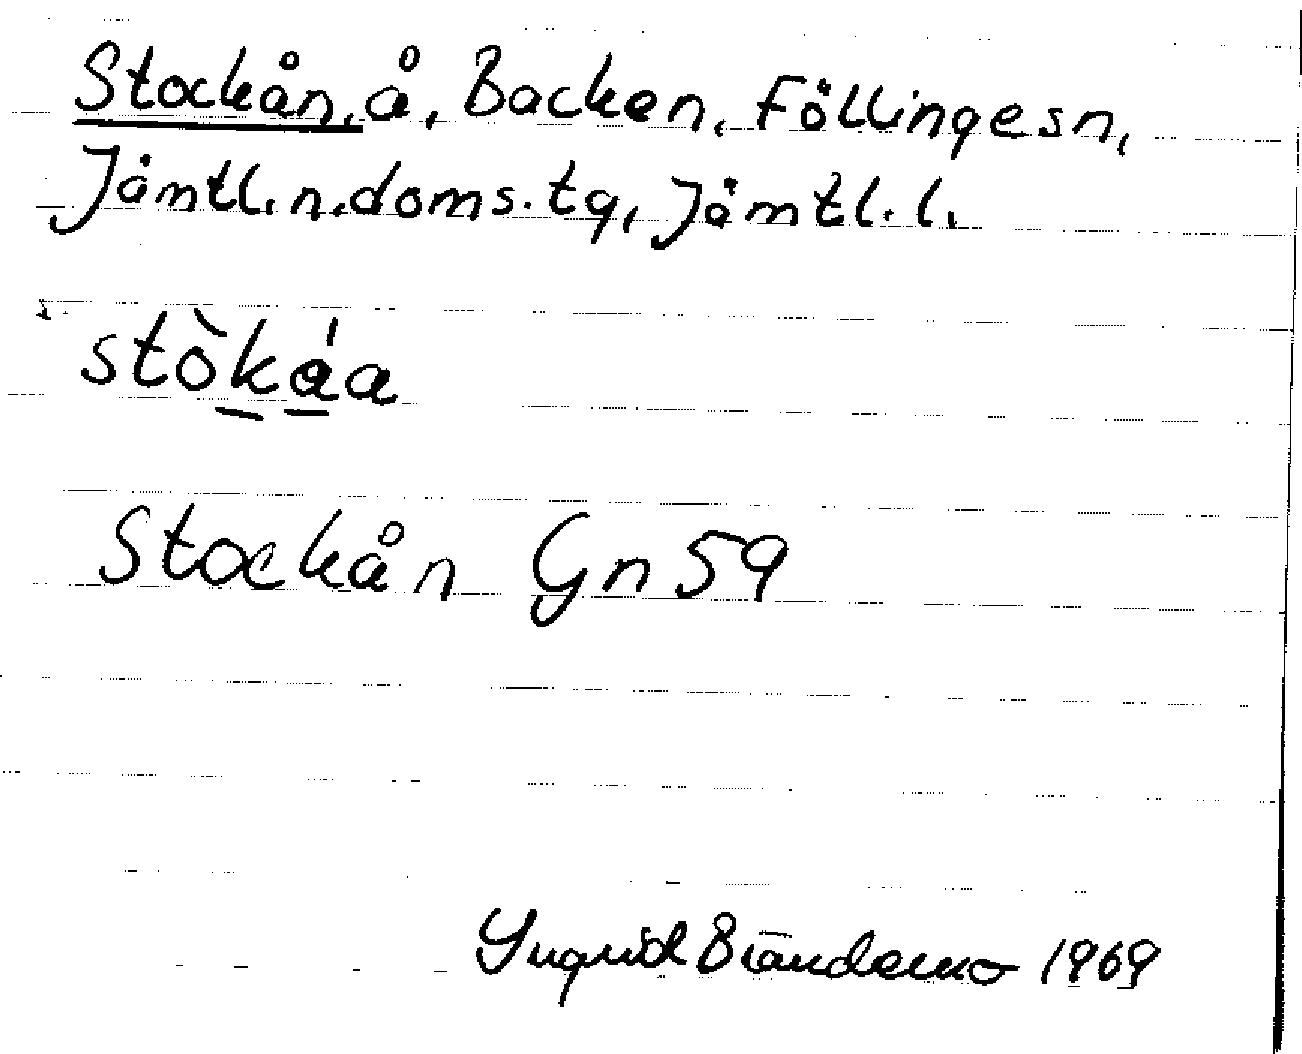 Stockån, å, Backen, Föllinge sn,
Jämtl. n. doms. tg, Jämtl. l.
stò̀ḵá̱a
Stockån Gn 59
Ingrid Brändemo 1969